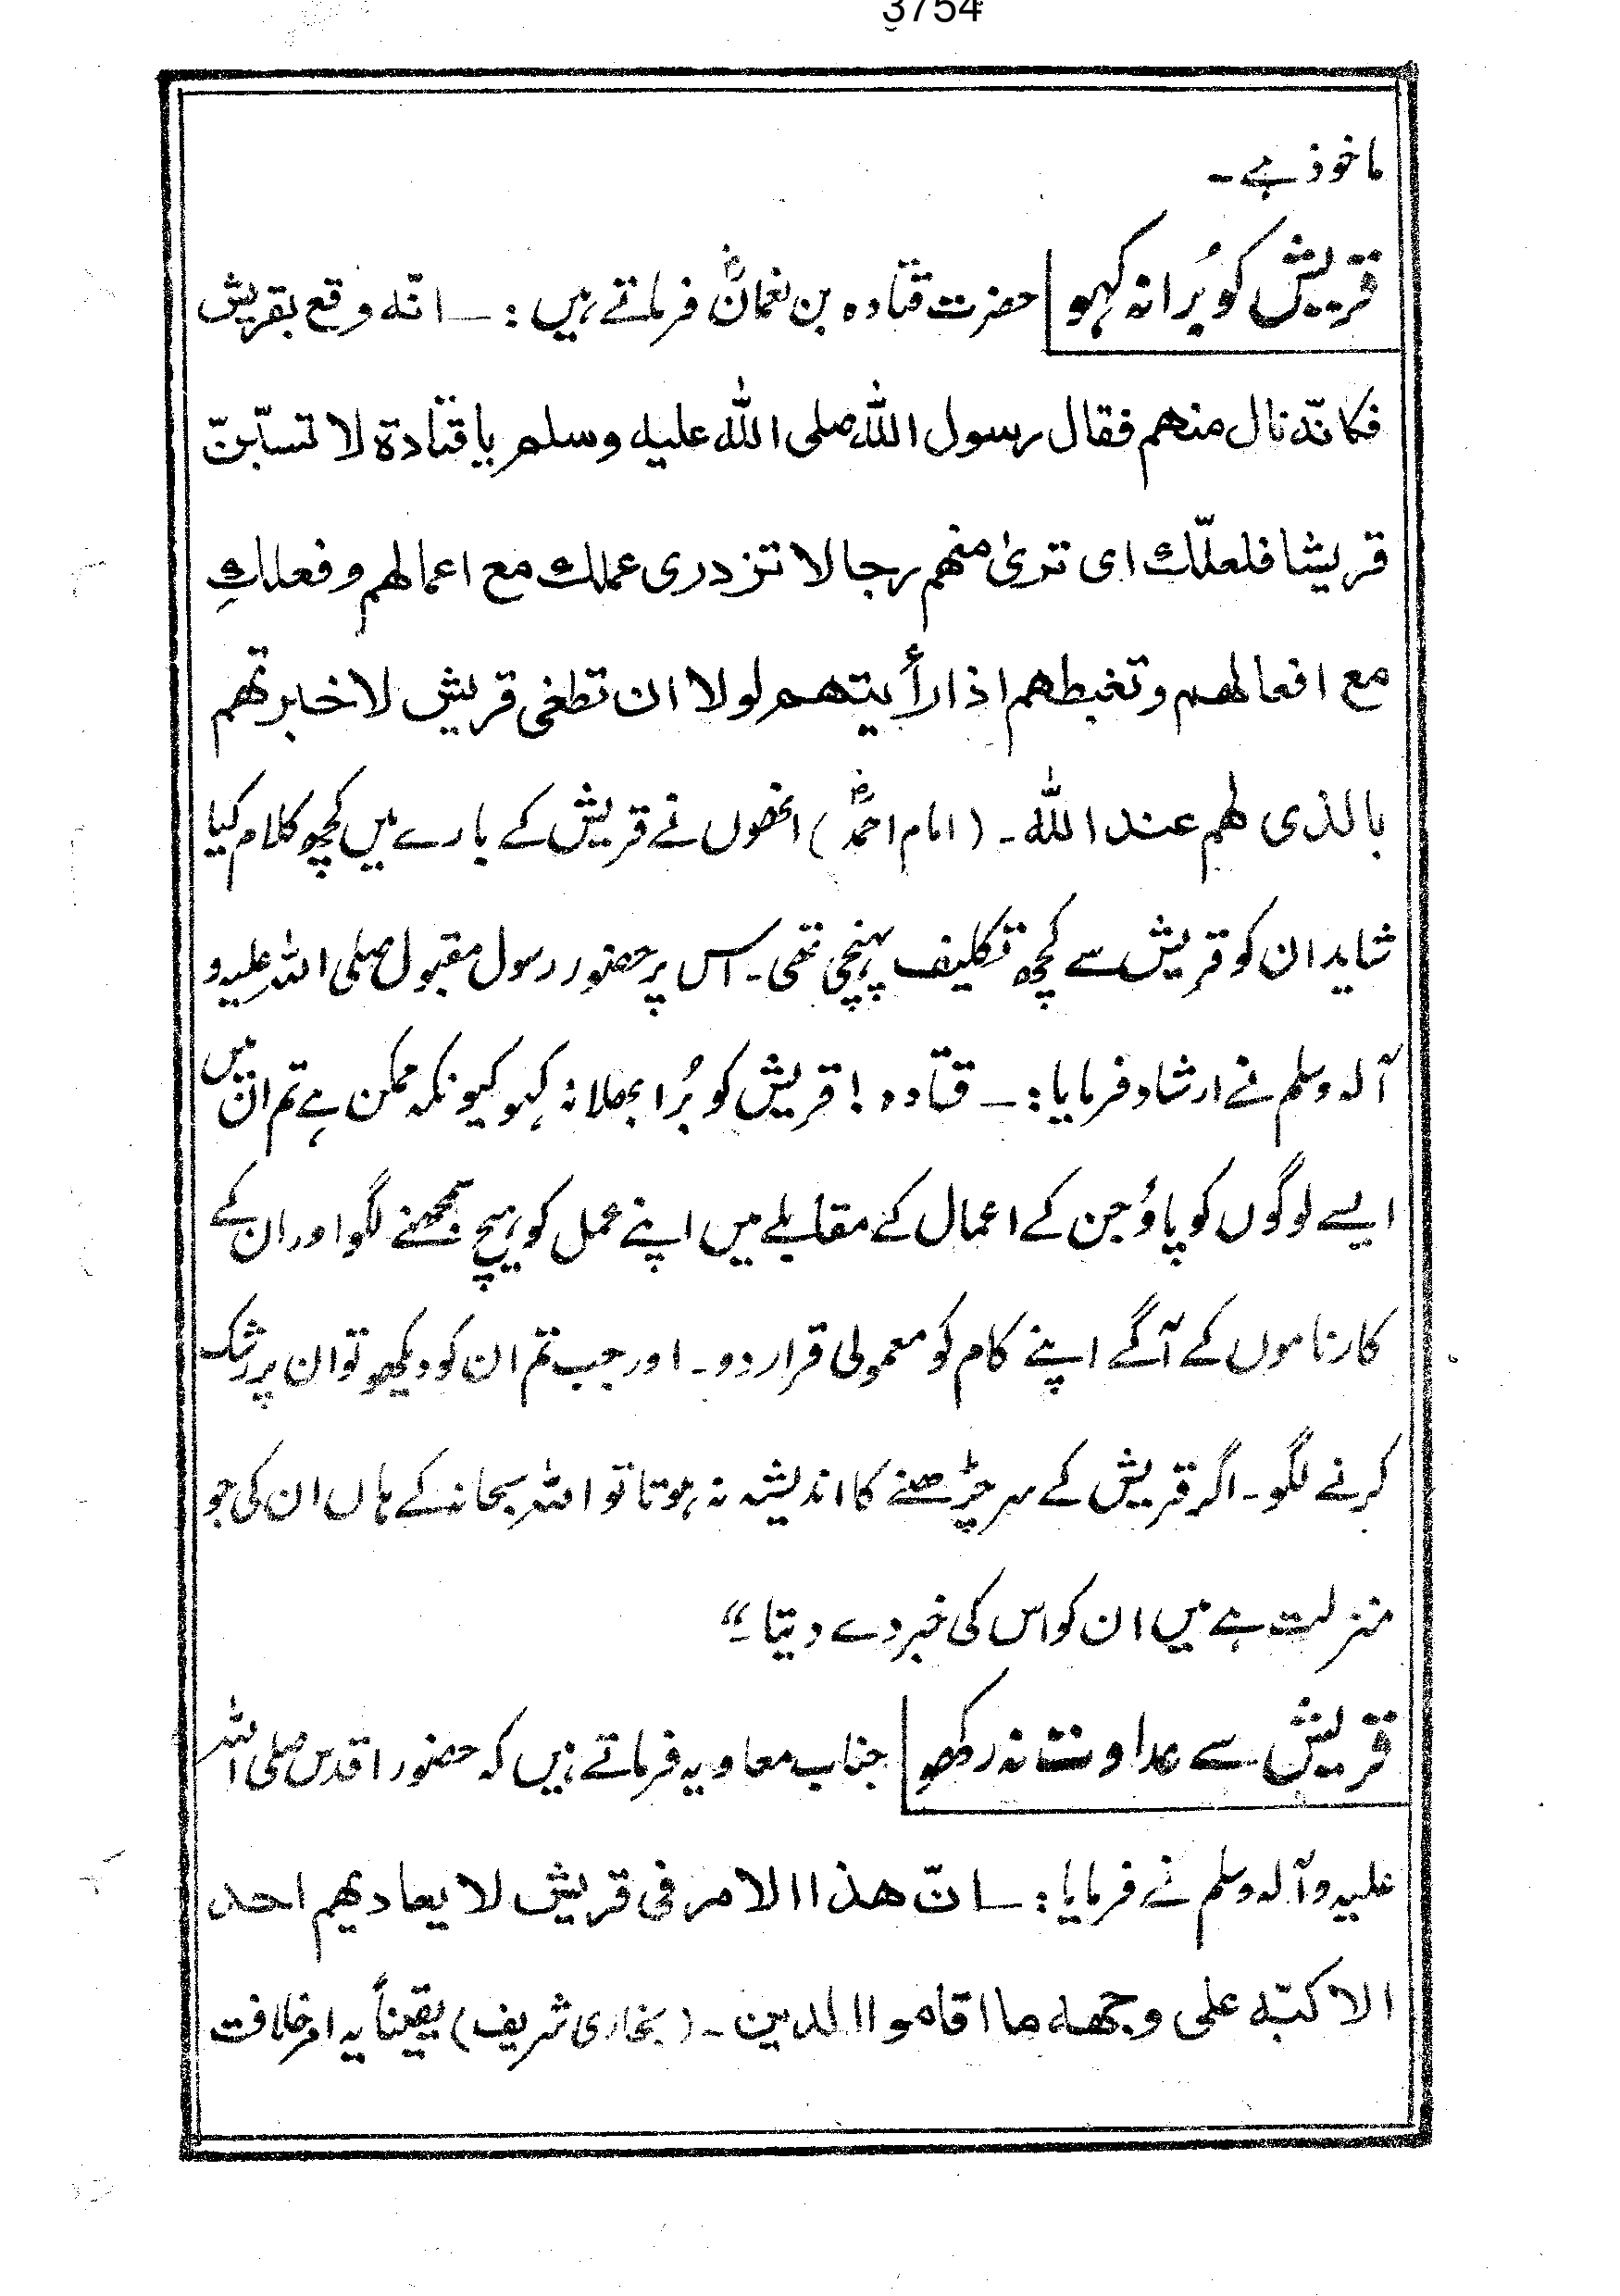 3754
ماخوذ ہے۔
قریش کو بُرا نہ کہو حضرت قتادہ بن نعمانؓ فرماتے ہیں :ـ انّه وقع بقریش
فكانّه نال منهم فقال رسول الله صلى الله عليه وسلم يا قتادة لا تسبّنّ
قريشا فلعلّك ای ترىٰ منهم رجالا تزدری عملك مع اعمالهم وفعلكِ
مع افعالهم وتغبطهم اذا رأيتهم لولا ان تطغى قريش لاخبرتهم
بالذی لهم عند الله۔ (امام احمدؒ) انھوں نے قریش کے بارے میں کچھ کلام کیا
شاید ان کو قریش سے کچھ تکلیف پہنچی تھی۔ اس پر حضور رسول مقبول صلی اللہ علیہ و
آلہ وسلم نے ارشاد فرمایا :ـ قتادہ ! قریش کو بُرا بھلا نہ کہو کیونکہ ممکن ہے تم ان میں
ایسے لوگوں کو پاؤ جن کے اعمال کے مقابلے میں اپنے عمل کو ہیچ سمجھنے لگو اور ان کے
کارناموں کے آگے اپنے کام کو معمولی قرار دو۔ اور جب تم ان کو دیکھو تو ان پر رشک
کرنے لگو۔ اگر قریش کے سر چڑھنے کا اندیشہ نہ ہوتا تو اللہ سبحانہ کے ہاں ان کی جو
منزلت ہے میں ان کو اس کی خبر دے دیتا۔“
قریش سے عداوت نہ رکھو جناب معاویہ فرماتے ہیں کہ حضور اقدس صلی اللہ
علیہ وآلہ وسلم نے فرمایا :ـ انّ هذا الامر فی قریش لا یعادیهم احد
الا كبّه على وجهه ما اقاموا الدین۔ (بخاری شریف) یقیناً یہ امر خلافت